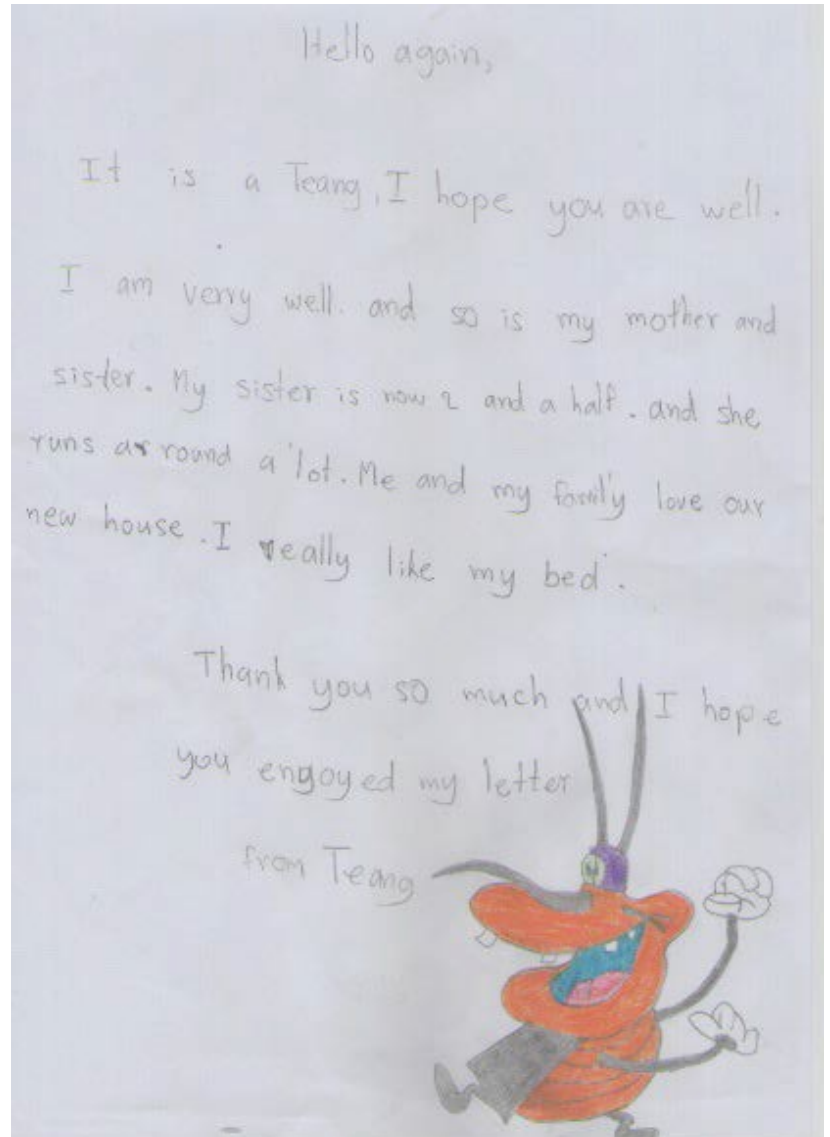 Hello again,
It is a Teang, I hope you are well.
I am verry well. and so is my mother and
sister. My sister is now 2 and a half. and she
runs ar round a lot. Me and my family love our
new house. I really like my bed.
Thank you so much and I hope
you engoyed my letter
from Teang